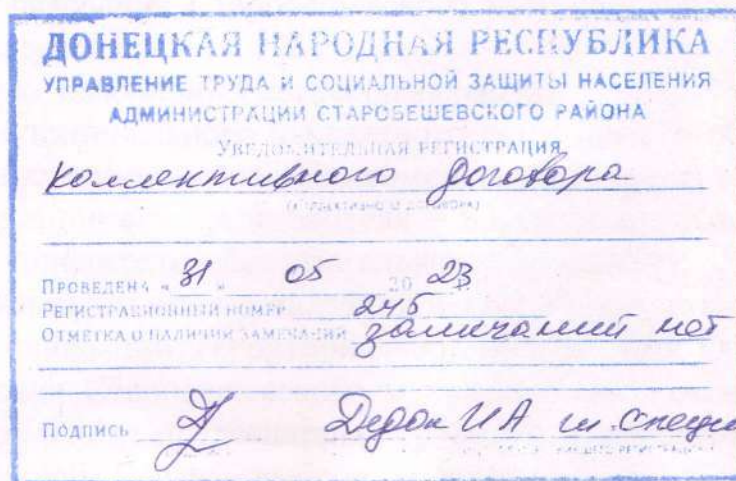 ДОНЕЦКАЯ НАРОДНАЯ РЕСПУБЛИКА
УПРАВЛЕНИЕ ТРУДА И СОЦИАЛЬНОЙ ЗАЩИТЫ НАСЕЛЕНИЯ
АДМИНИСТРАЦИИ СТАРОБЕШЕВСКОГО РАЙОНА
УВЕДОМИТЕЛЬНАЯ РЕГИСТРАЦИЯ
коллективного договора
(КОЛЛЕКТИВНОГО ДОГОВОРА)
ПРОВЕДЕНА « 31 » 05 20 23
РЕГИСТРАЦИОННЫЙ НОМЕР 245
ОТМЕТКА О НАЛИЧИИ ЗАМЕЧАНИЙ замечаний нет
ПОДПИСЬ Дедок ИА гл. специа